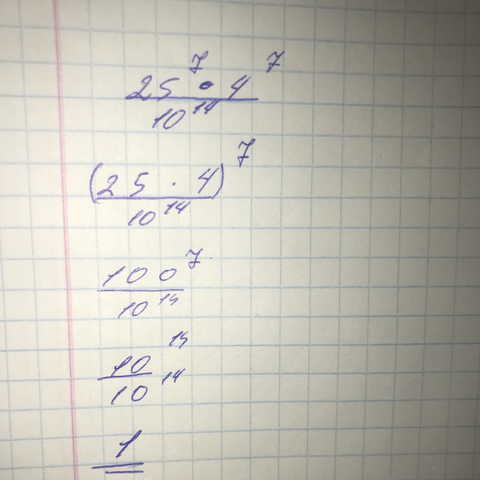 25⁷ · 4⁷
10¹⁴
(25 · 4)⁷
10¹⁴
100⁷
10¹⁴
10¹⁴
10¹⁴
1